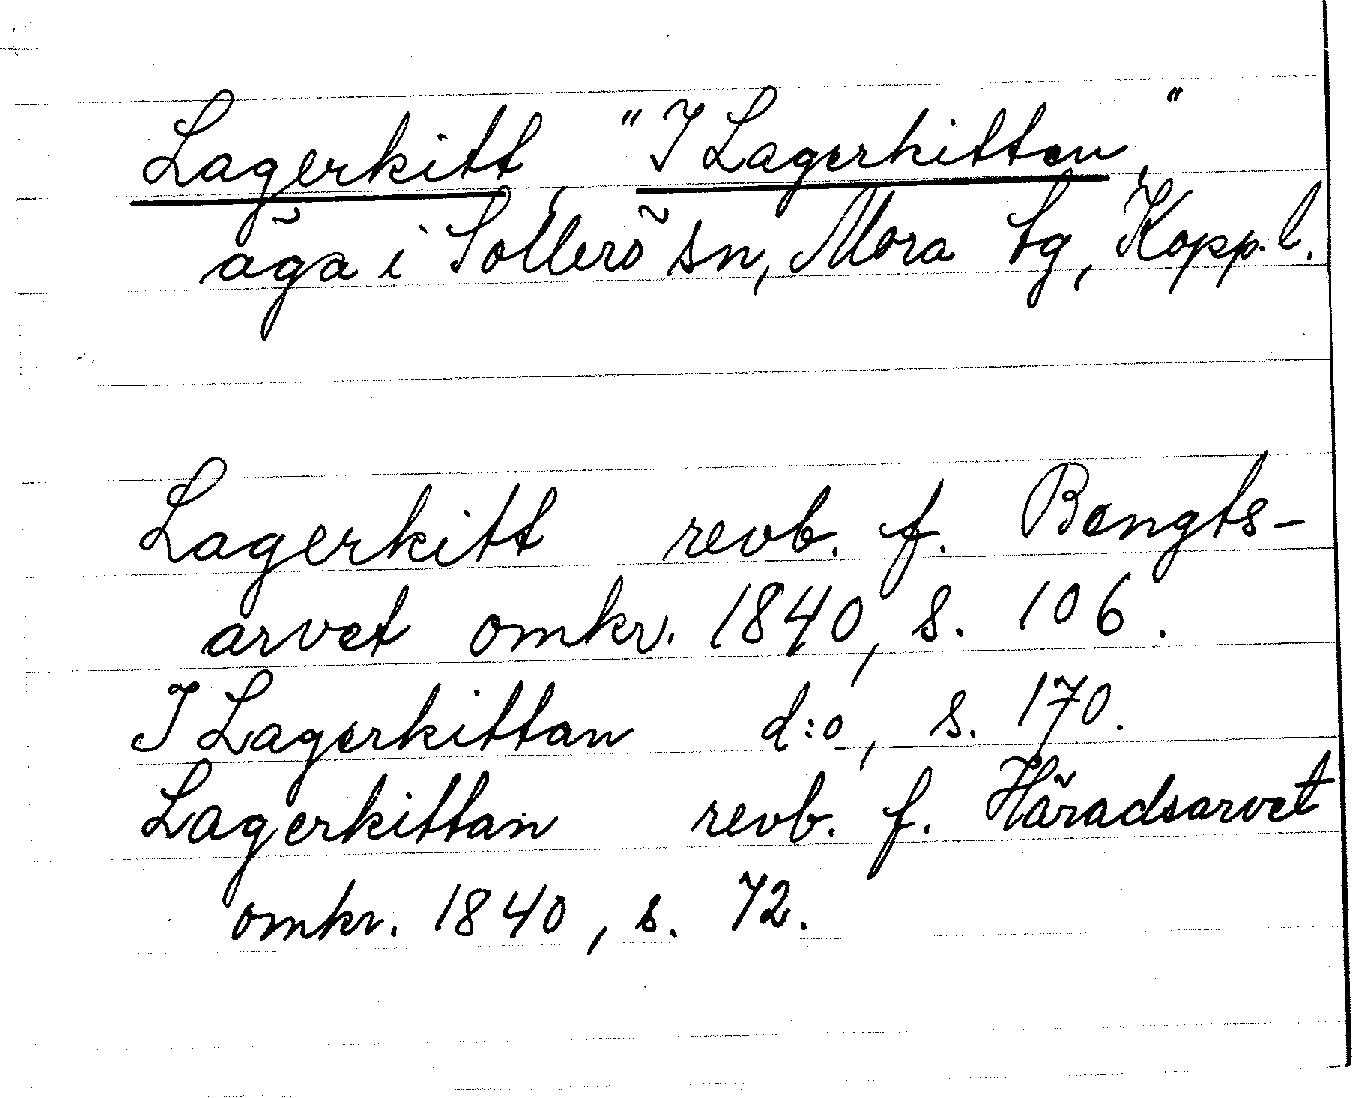 Lagerkitt, "I Lagerkitten,"
äga i Sollerö sn, Mora tg, Kopp.l.
Lagerkitt revb. f. Bengts-
arvet omkr. 1840, s. 106.
I Lagerkittan d:o, s. 170.
Lagerkittan revb. f. Häradsarvet
omkr. 1840, s. 72.